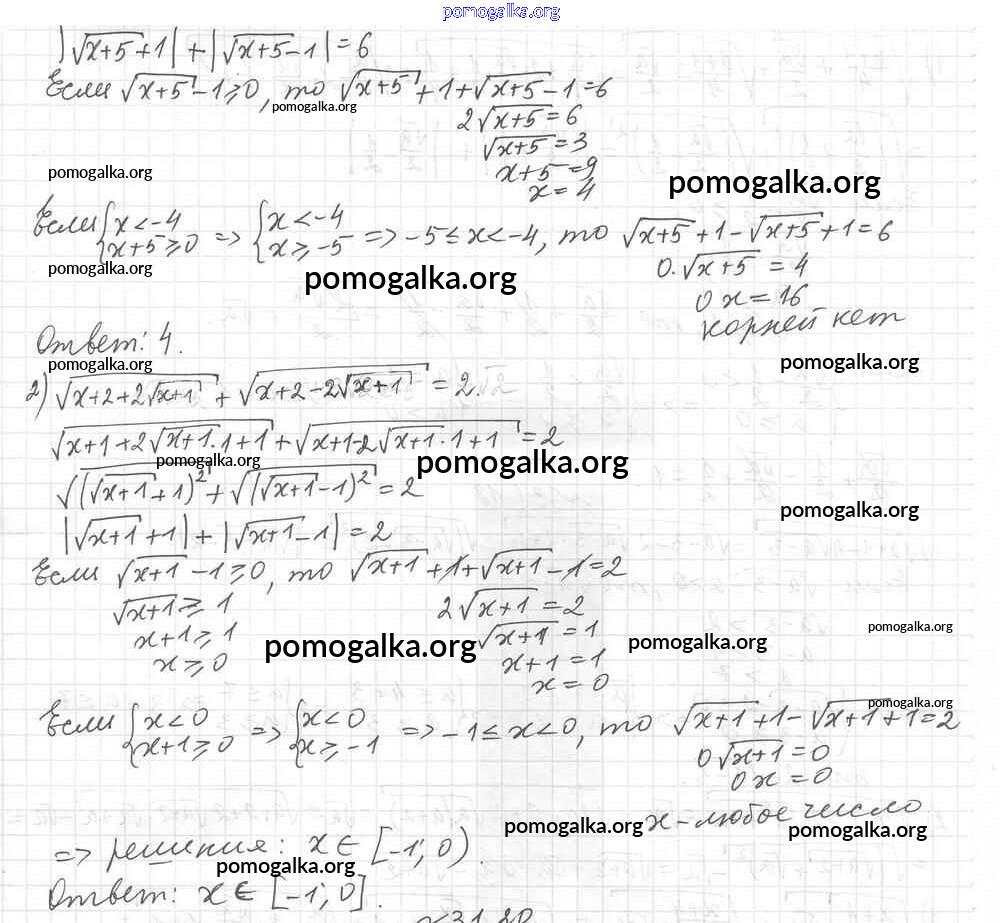 pomogalka.org
|√(x+5)+1| + |√(x+5)-1| = 6
Если √(x+5)-1≥0, то √(x+5)+1+√(x+5)-1=6
pomogalka.org
2√(x+5)=6
√(x+5)=3
x+5=9
x=4
pomogalka.org
pomogalka.org
Если {x<-4 x+5≥0 => {x<-4 x≥-5 => -5≤x<-4, то √(x+5)+1-√(x+5)+1=6
pomogalka.org
pomogalka.org
0·√(x+5)=4
0x=16
корней нет
Ответ: 4.
pomogalka.org
pomogalka.org
2) √(x+2+2√(x+1)) + √(x+2-2√(x+1)) = 2.
√(x+1+2√(x+1)·1+1)+√(x+1-2√(x+1)·1+1)=2
pomogalka.org
pomogalka.org
√((√(x+1)+1)²)+√((√(x+1)-1)²)=2
pomogalka.org
|√(x+1)+1|+|√(x+1)-1|=2
Если √(x+1)-1≥0, то √(x+1)+1+√(x+1)-1=2
√(x+1)≥1
2√(x+1)=2
x+1≥1
√(x+1)=1
x≥0
x+1=1
x=0
pomogalka.org
pomogalka.org
pomogalka.org
pomogalka.org
Если {x<0 x+1≥0 => {x<0 x≥-1 => -1≤x<0, то √(x+1)+1-√(x+1)+1=2
0√(x+1)=0
0x=0
x-любое число
pomogalka.org
pomogalka.org
=> решения: x∈[-1;0).
pomogalka.org
Ответ: x∈[-1;0].